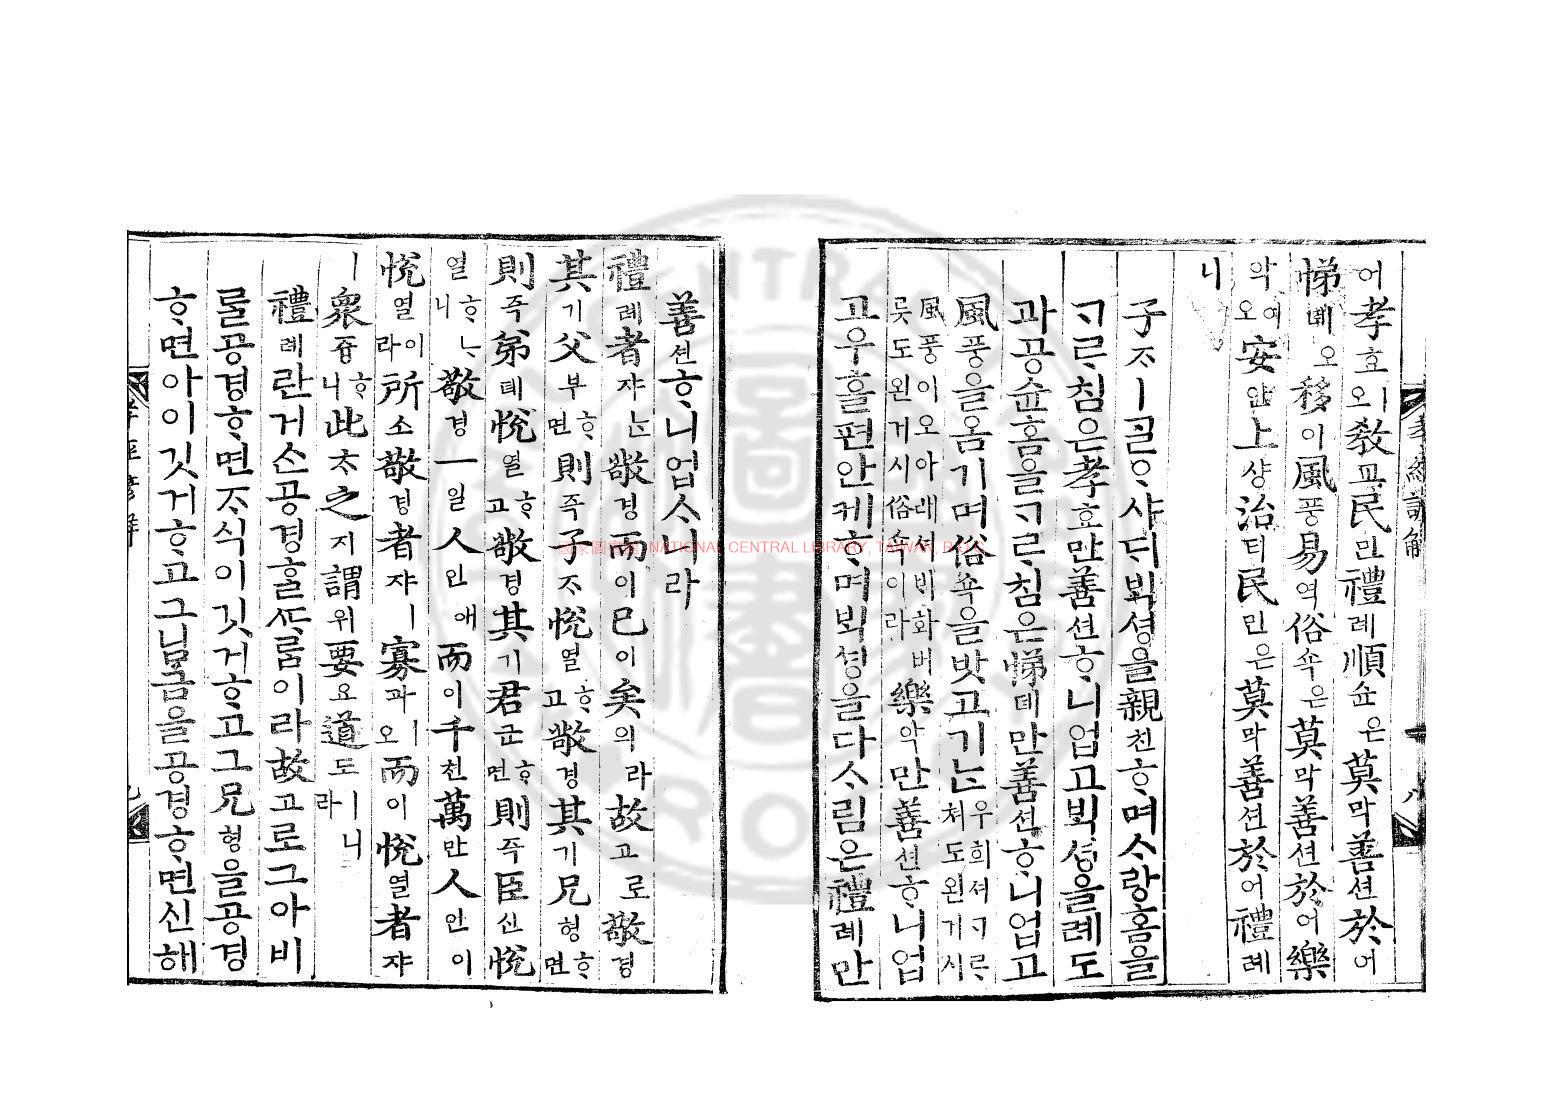 孝經諺解 八
어孝효ㅣ오敎교民민禮례順슌은莫막善션於어
悌뎨오移이風풍易역俗쇽은莫막善션於어樂
악이오安안上샹治티民민은莫막善션於어禮례
니
子ᄌᆞㅣᄀᆞᆯᄋᆞ샤ᄃᆡᄇᆡᆨ셩을親친ᄒᆞ며ᄉᆞ랑홈을
ᄀᆞᄅᆞ침은孝효만善션ᄒᆞ니업고ᄇᆡᆨ셩을례도
과공슌홈을ᄀᆞᄅᆞ침은悌뎨만善션ᄒᆞ니업고
風풍을옴기며俗쇽을밧고기ᄂᆞᆫ우희셔ᄀᆞᄅᆞ쳐도왼기시
風풍이오아래셔ᄇᆡ화버릇도왼거시俗쇽이라樂악만善션ᄒᆞ니업
고우흘편안케ᄒᆞ며ᄇᆡᆨ셩을다ᄉᆞ림은禮례만
善션ᄒᆞ니업ᄉᆞ니라
禮례者쟈ᄂᆞᆫ敬경而이已이矣의라故고로敬경
其기父부ᄒᆞ면則즉子ᄌᆞ悅열ᄒᆞ고敬경其기兄형ᄒᆞ면
則즉弟뎨悅열ᄒᆞ고敬경其기君군ᄒᆞ면則즉臣신悅
열ᄒᆞᄂᆞ니敬경一일人인애而이千쳔萬만人인이
悅열이라所소敬경者쟈ㅣ寡과ㅣ오而이悅열者쟈
ㅣ衆즁ᄒᆞ니此ᄎᆞ之지謂위要요道도ㅣ니라
禮례란거ᄉᆞᆫ공경ᄒᆞᆯᄯᆞᄅᆞᆷ이라故고로그아비
ᄅᆞᆯ공경ᄒᆞ면ᄌᆞ식이깃거ᄒᆞ고그兄형을공경
ᄒᆞ면아이깃거ᄒᆞ고그님금을공경ᄒᆞ면신해
孝經諺解 九
國家圖書館 NATIONAL CENTRAL LIBRARY, TAIWAN, R.O.C